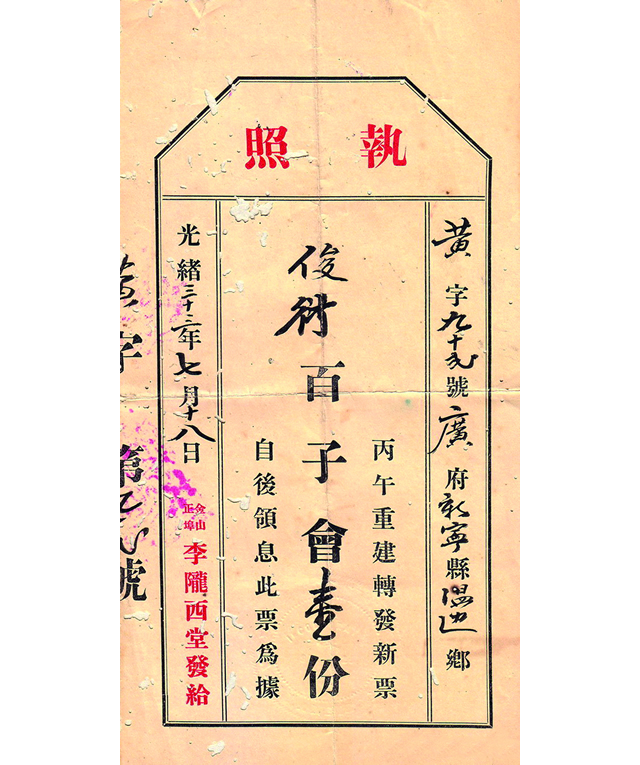 執照
黃字九十號廣府新寧縣温边鄉
丙午重建轉發新票
俊百子會壹份
自後領息此票爲據
光緒三十二年七月十八日
金山正埠
李隴西堂發給
黃字第號